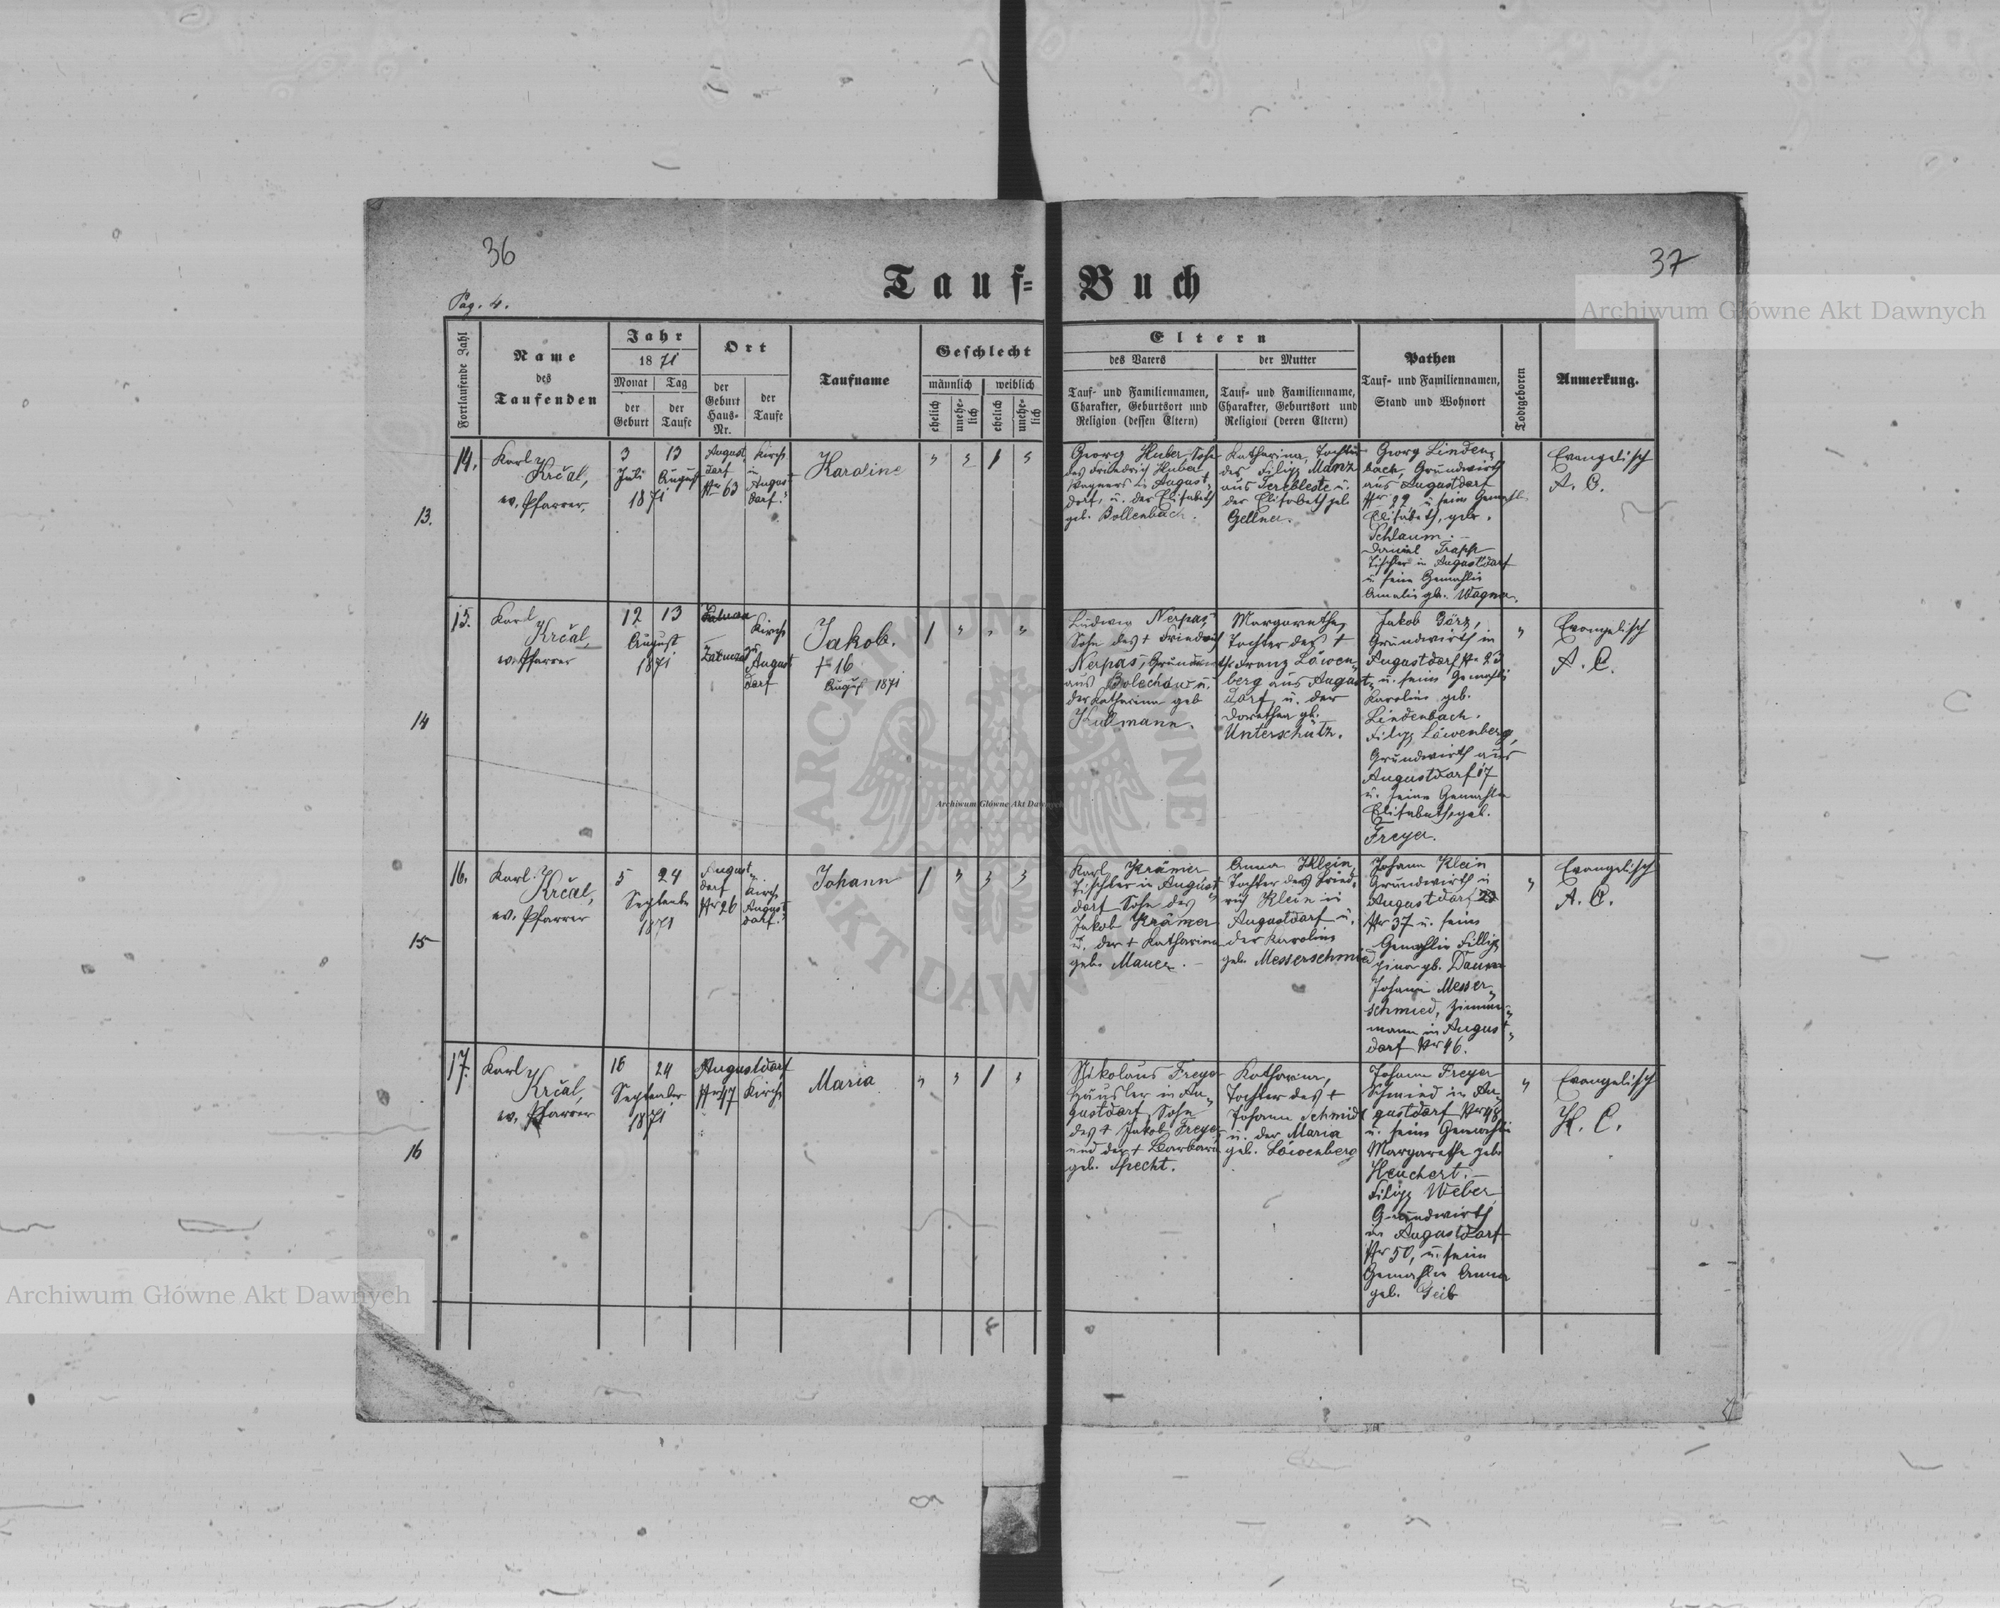 36
37
Tauf-Buch
Pag. 4.
Archiwum Główne Akt Dawnych
Fortlaufende Zahl
Name
des
Taufenden
Jahr
1871
Monat
Tag
der
Geburt
der
Taufe
Ort
der
Geburt
Haus-
Nr.
der
Taufe
Taufname
Geschlecht
männlich
weiblich
ehelich
unehe-
lich
ehelich
unehe-
lich
Eltern
des Vaters
der Mutter
Tauf- und Familiennamen,
Charakter, Geburtsort und
Religion (dessen Eltern)
Tauf- und Familienname,
Charakter, Geburtsort und
Religion (deren Eltern)
Pathen
Tauf- und Familiennamen,
Stand und Wohnort
Todtgeboren
Anmerkung.
14.
13.
Karl
Krčal,
ev. Pfarrer.
3
Juli
13
August
1871
August„
dorf
Nr 63
Kirche
in
August„
dorf.
Karoline
" " 1 "
Georg Huber, Sohn
des Friedrich Huber
Wagners in August„
dorf, u. der Elisabeth
geb. Bollenbach.
Katharina, Tochter
des Filipp Manz
aus Terebleste u.
der Elisabeth geb.
Gellner.
Georg Linden„
bach, Grundwirth
aus Augustdorf
Nr 22 u. seine Gemahl.
Elisabeth, geb.
Schlaum. –
Daniel
Tischler in Augustdorf
u. seine Gemahlin
Amalie gb. Wagner.
Evangelisch
A. C.
15.
14
Karl
Krčal,
ev. Pfarrer
12 13
August
1871
Kirche
in
August
dorf
Jakob.
† 16
August 1871
1 " " "
Ludwig Nerpas,
Sohn des † Friedrich
Nerpas, Grundwirth
aus Bolechów u.
der Katharina geb
Kullmann.
Margarethe,
Tochter des †
Franz Löwen„
berg aus August„
dorf, u. der
Dorothea gb.
Unterschütz.
Jakob Görz,
Grundwirth in
Augustdorf Nr 23
u. seine Gemahlin
Karoline geb.
Lindenbach.
Filipp Löwenberg,
Grundwirth aus
Augustdorf 17
u. seine Gemahlin
Elisabeth, geb.
Freyer.
"
Evangelisch
A. C.
16.
15
Karl
Krčal,
ev. Pfarrer
5 24
September
1871
August„
dorf
Nr 26
Kirche
August
dorf.
Johann
1 " " "
Karl Krämer
Tischler in August„
dorf Sohn des
Jakob Krämer
u. der † Katharina
geb. Mauer. –
Anna Klein
Tochter des Fried„
rich Klein in
Augustdorf u.
der Karoline
geb. Messerschmied
Johann Klein
Grundwirth in
Augustdorf
Nr 37 u. seine
Gemahlin Fillip„
pina gb. Daum
Johann Messer„
schmied, Zimmer„
mann in August„
dorf Nr 46.
"
Evangelisch
A. C.
17.
16
Karl
Krčal,
ev. Pfarrer
16 24
September
1871
Augustdorf
Nr 47
Kirche
Maria
" " 1 "
Nikolaus Freyer
Häusler in Au„
gustdorf, Sohn
des † Jakob Freyer
und der † Barbara
geb. Specht.
Katharina,
Tochter des †
Johann Schmidt
u. der Maria
geb. Löwenberg
Johann Freyer
Schmied in Au„
gustdorf Nr 48
u. seine Gemahlin
Margarethe geb.
Heuchert. –
Filipp Weber
Grundwirth
in Augustdorf
Nr 50, u. seine
Gemahlin Anna
geb. Geib
"
Evangelisch
H. C.
ARCHIWUM GŁÓWNE AKT DAWNYCH
Archiwum Główne Akt Dawnych
Archiwum Główne Akt Dawnych